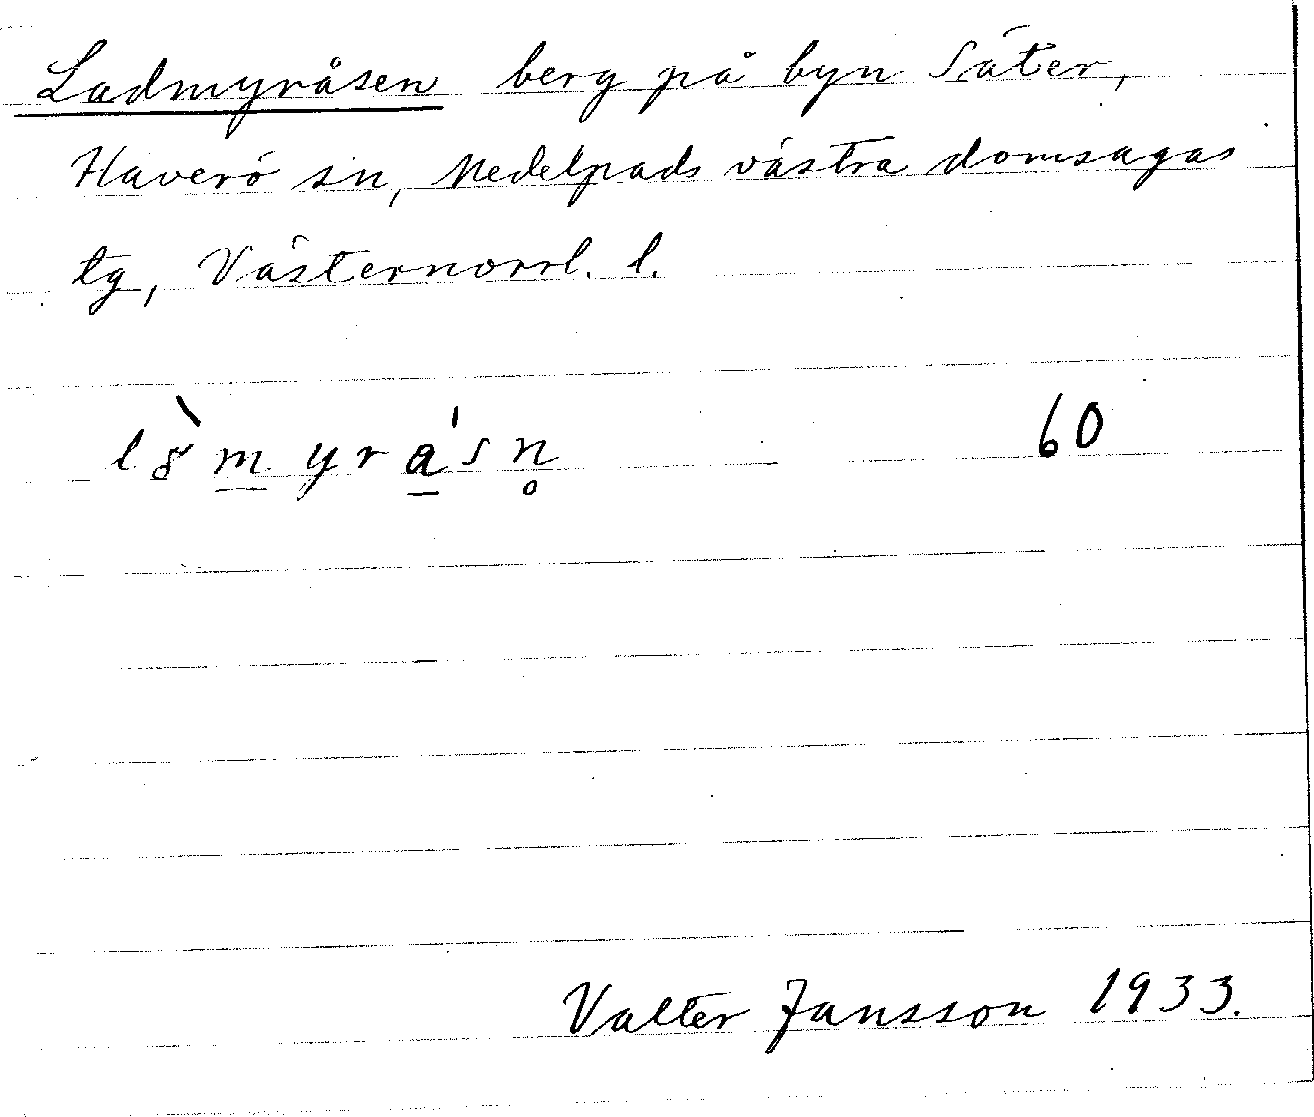 Ladmyråsen berg på byn Säter,
Haverö sn, Medelpads västra domsagas
tg, Västernorrl. l.
60
Valter Jansson 1933.